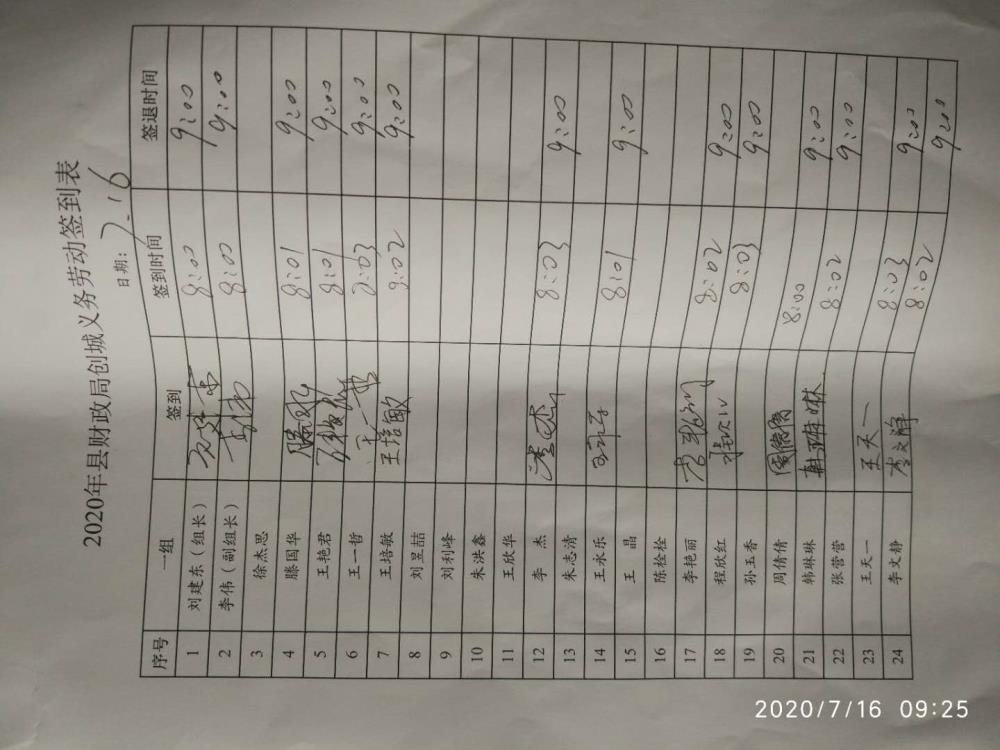 2020年县财政局创城义务劳动签到表
日期：7.16
序号 一组 签到 签到时间 签退时间
1 刘建东（组长） 8:00 9:00
2 李伟（副组长） 8:00 9:00
3 徐杰思
4 滕国华 8:01 9:00
5 王艳君 8:01 9:00
6 王一哲 王一哲 8:03 9:00
7 王培敏 王培敏 8:02 9:00
8 刘昱喆
9 刘利峰
10 朱洪鑫
11 王欣华
12 李 杰 李杰 8:03 9:00
13 朱志清
14 王永乐 8:01 9:00
15 王 晶
16 陈栓栓
17 李艳丽 李艳丽 8:02 9:00
18 程欣红 8:03 9:00
19 孙玉香
20 周倩倩 周倩倩 8:00 9:00
21 韩琳琳 韩琳琳 8:02 9:00
22 张营营
23 王天一 王天一 8:03 9:00
24 李文静 李文静 8:02 9:00
2020/7/16 09:25